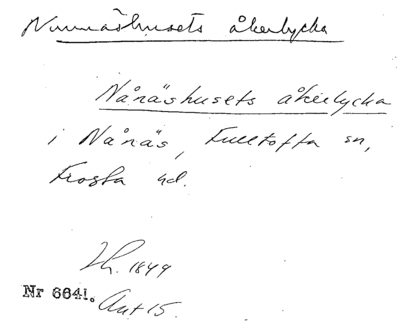 Nunnäshusets åkerlycka
Nånäshusets åkerlycka
i Nånäs, Fulltofta sn,
Frosta hd.
Lh. 1849
Nr 6641. Akt 15.